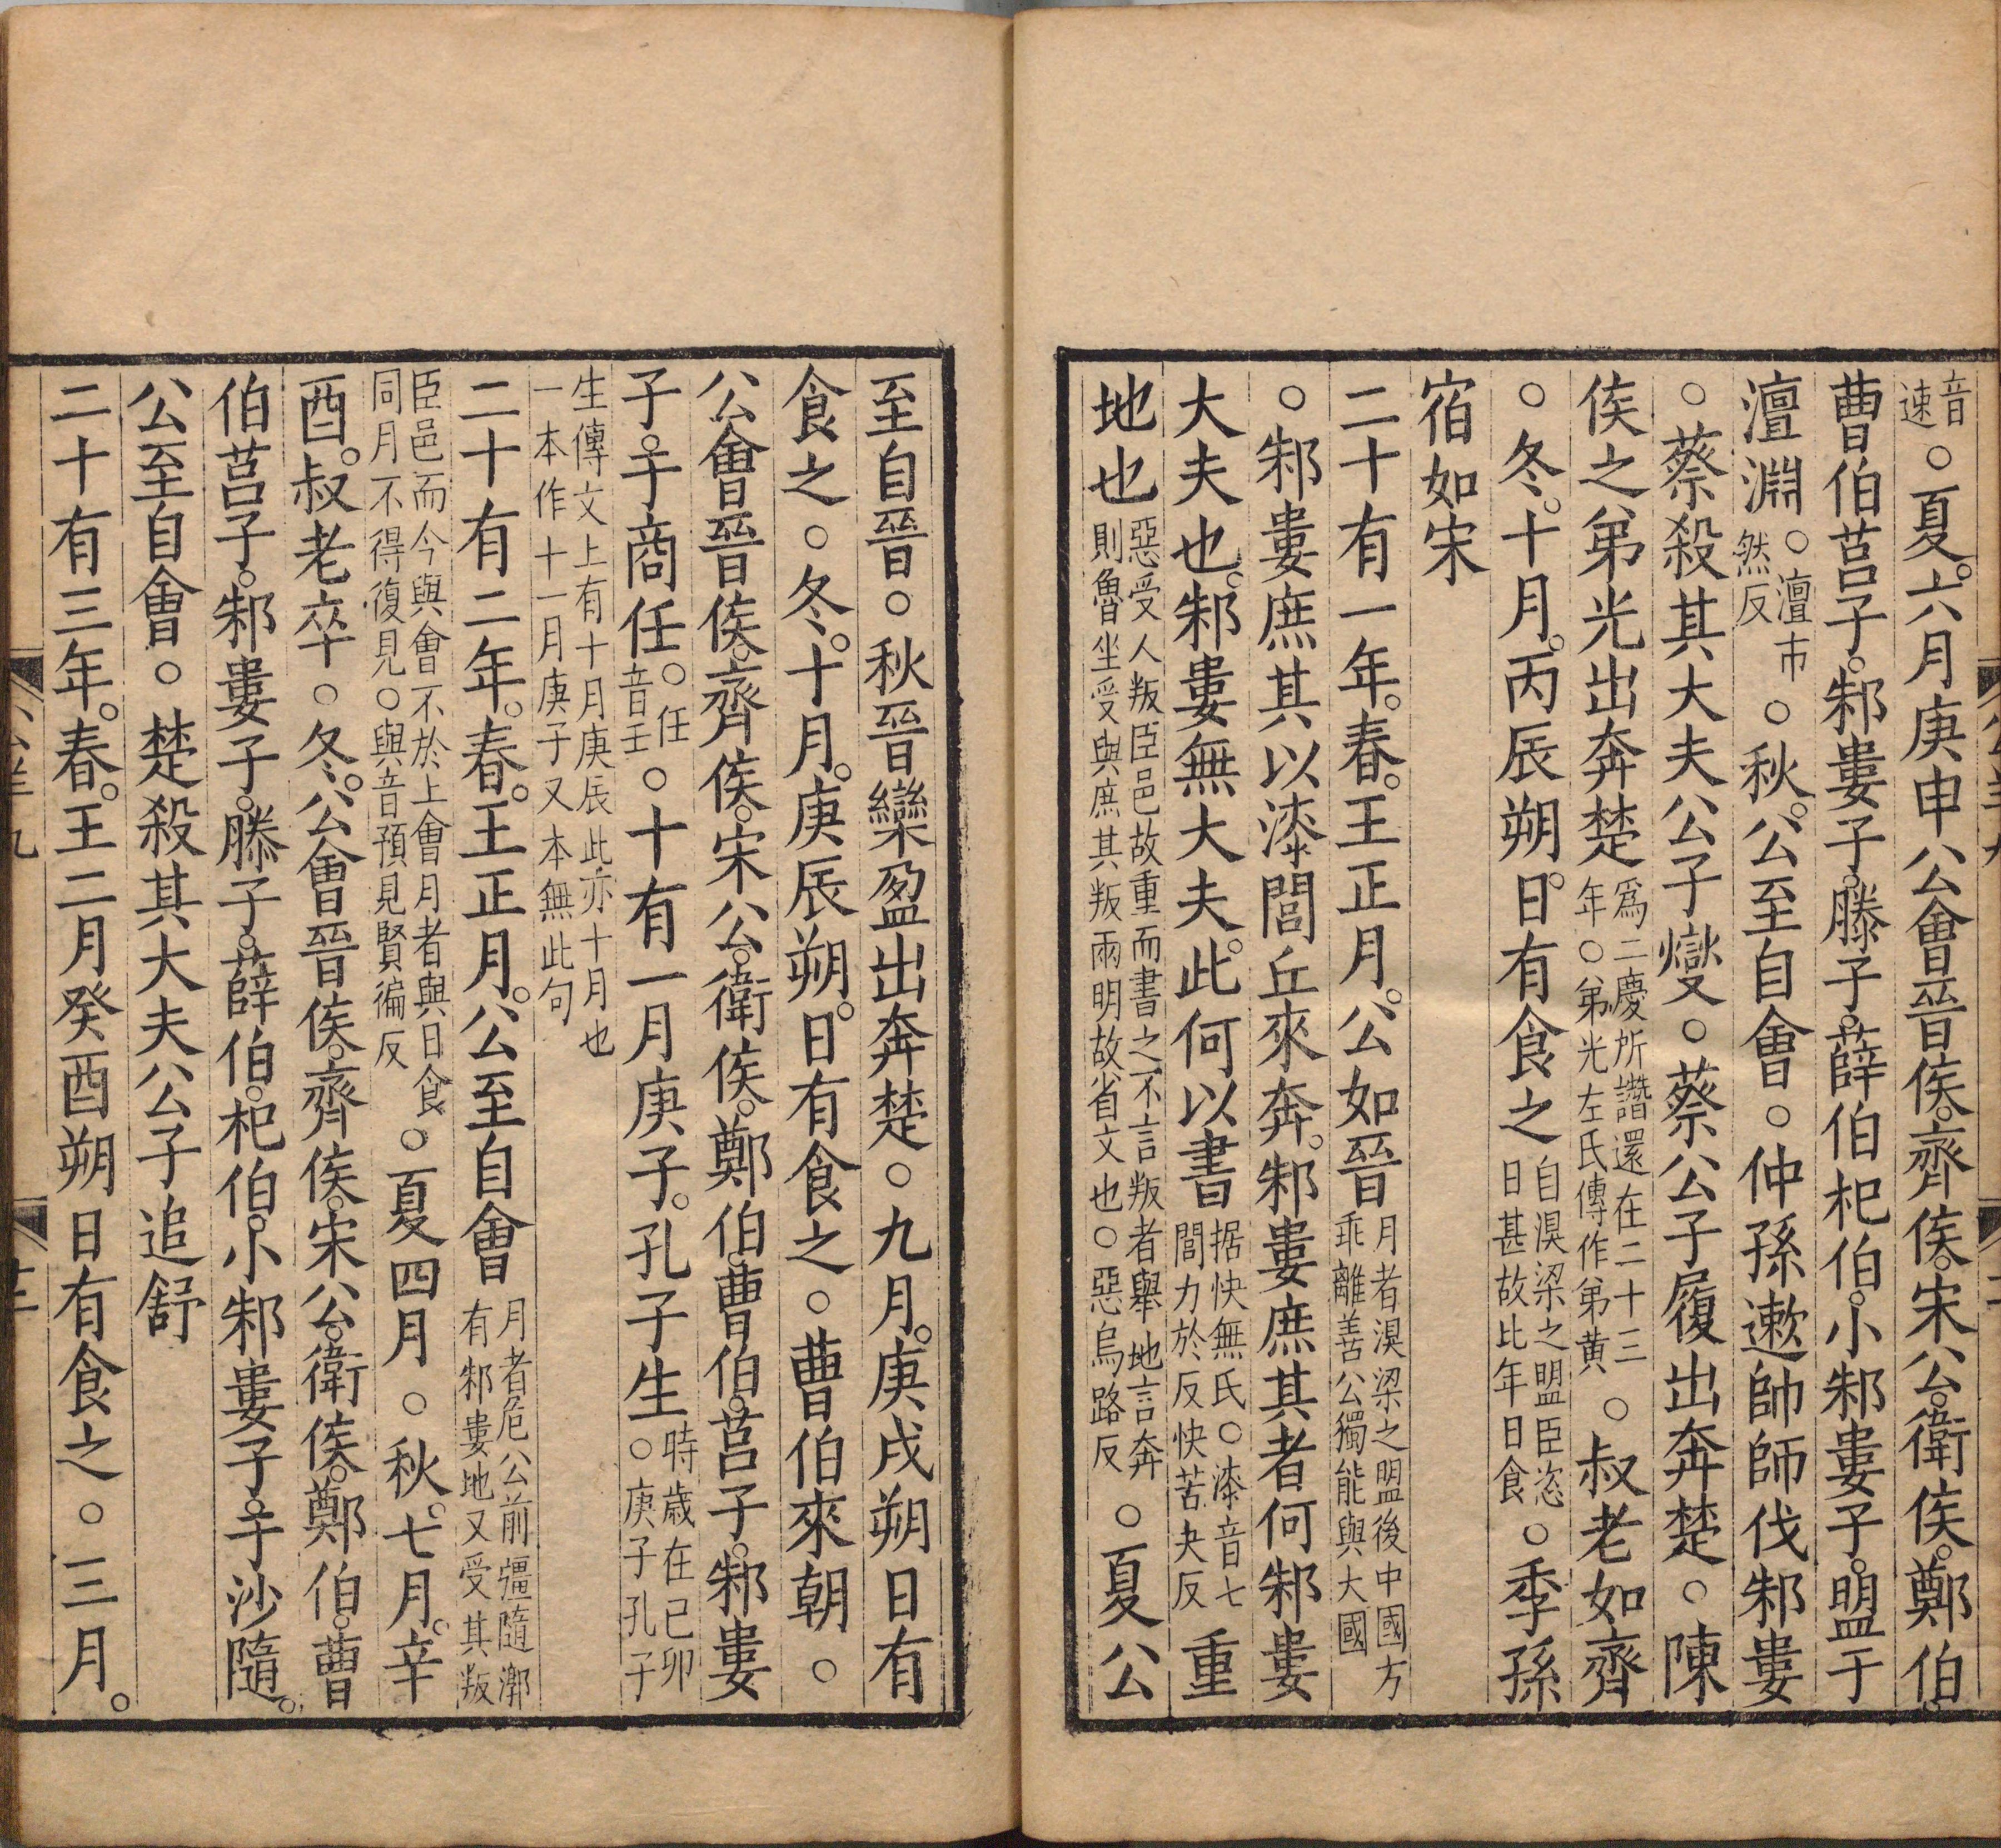 音速○夏。六月庚申公會晉侯。齊侯。宋公。衛侯。鄭伯。
曹伯莒子。邾婁子。滕子。薛伯杞伯。小邾婁子。盟于
澶淵○澶市然反○秋。公至自會○仲孫遬帥師伐邾婁
○蔡殺其大夫公子燮○蔡公子履出奔楚○陳
侯之弟光出奔楚爲二慶所譖還在二十三年○弟光左氏傳作弟黄○叔老如齊
○冬。十月。丙辰朔。日有食之自湨梁之盟臣恣日甚故比年日食○季孫
宿如宋
二十有一年。春。王正月。公如晉月者湨梁之盟後中國方乖離善公獨能與大國
○邾婁庶其以漆閭丘來奔。邾婁庶其者何邾婁
大夫也。邾婁無大夫。此何以書据快無氏○漆音七閭力於反快苦夬反重
地也惡受人叛臣邑故重而書之不言叛者舉地言奔則魯坐受與庶其叛兩明故省文也○惡烏路反○夏公
至自晉○秋晉欒盈出奔楚○九月。庚戌朔日有
食之○冬。十月。庚辰朔。日有食之○曹伯來朝○
公會晉侯。齊侯。宋公。衛侯。鄭伯。曹伯。莒子。邾婁
子。于商任○任音壬○十有一月庚子。孔子生時歲在己卯○庚子孔子
生傳文上有十月庚辰此亦十月也一本作十一月庚子又本無此句
二十有二年。春。王正月。公至自會月者危公前疆隨漷有邾婁地又受其叛
臣邑而今與會不於上會月者與日食同月不得復見○與音預見賢徧反○夏四月○秋。七月。辛
酉。叔老卒○冬。公會晉侯。齊侯。宋公。衛侯。鄭伯。曹
伯莒子。邾婁子。滕子。薛伯。杞伯。小邾婁子。于沙隨。
公至自會○楚殺其大夫公子追舒
二十有三年。春。王二月癸酉朔日有食之○三月。